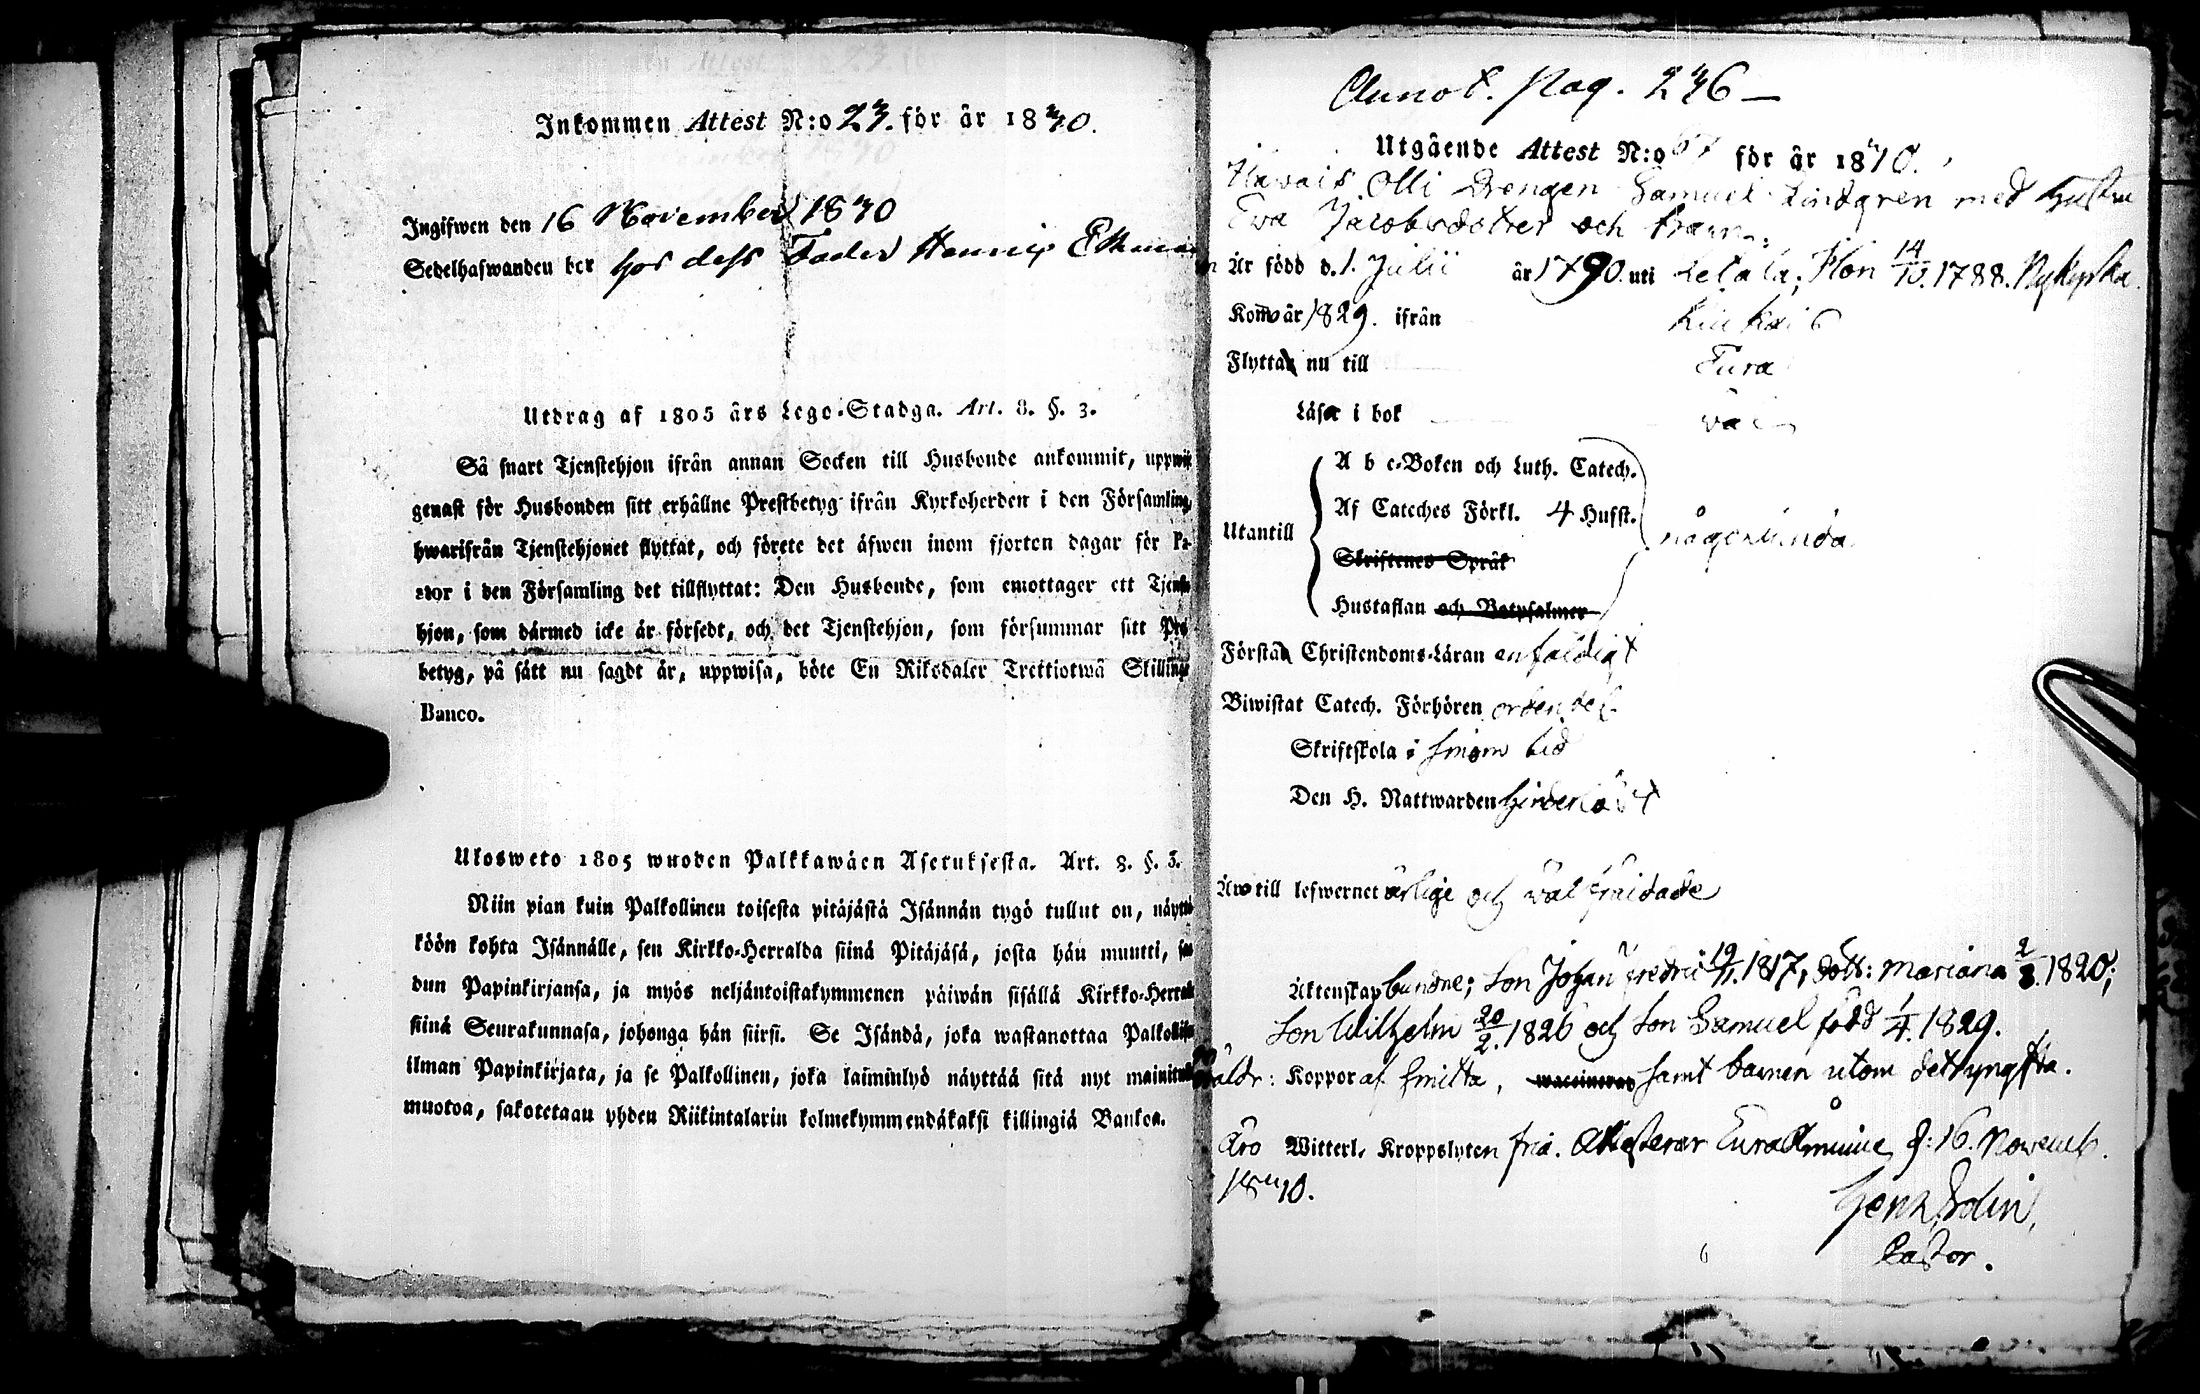 Inkommen Attest N:o 23. för år 1830.
Ingifwen den 16 November 1830
Sedelhafwanden bor hos dess Fader Henric Ekman
Utdrag af 1805 års Lego-Stadga. Art. 8. §. 3.
Så snart Tjenstehjon ifrån annan Socken till Husbonde ankommit, uppwise
genast för Husbonden sitt erhållne Prestbetyg ifrån Kyrkoherden i den Församling,
hwarifrån Tjenstehjonet flyttat, och förete det äfwen inom fjorton dagar för Pa-
stor i den Församling det tillflyttat: Den Husbonde, som emottager ett Tjenste-
hjon, som därmed icke är försedt, och det Tjenstehjon, som försummar sitt Prest-
betyg, på sätt nu sagdt är, uppwisa, böte En Riksdaler Trettiotwå Skillingar
Banco.
Ulosweto 1805 wuoden Palkkawäen Asetuksesta. Art. 8. §. 3.
Niin pian kuin Palkollinen toisesta pitäjästä Isännän tygö tullut on, näyttä-
köön kohta Isännälle, sen Kirkko-Herralda siinä Pitäjäsä, josta hän muutti, saa-
dun Papinkirjansa, ja myös neljäntoistakymmenen päiwän sisällä Kirkko-Herralle
siinä Seurakunnasa, johonga hän siirsi. Se Isändä, joka wastanottaa Palkollisen
ilman Papinkirjata, ja se Palkollinen, joka laiminlyö näyttää sitä nyt mainitulla
muotoa, sakotetaan yhden Riikintalarin kolmekymmendäkaksi killingiä Bankoa.
Annot. Pag. 236 —
Utgående Attest N:o 67 för år 1830.
Olli Drengen Samuel Lindgren med Hustru
Eva Jacobsdotter och barn:
Är född d. 1. Julii år 1790. uti Letala; Hon 14/10. 1788. Nykyrka.
Kom år 1829. ifrån Kiukais
Flytta nu till Eura
Läsa i bok väl
Utantill
A b c-Boken och Luth. Catech.
Af Cateches Förkl. 4 Hufst. någorlunda
Skriftenes Språk
Hustaflan och Botpsalmer
Förstå Christendoms-Läran enfaldigt
Biwistat Catech. Förhören ordentel.
Skriftskola i sinom tid
Den H. Nattwarden
Äro till lefwernet ärlige och väl frejdade
Äktenskap bundne; Son Johan Fredric 19/11. 1817, dott: Mariana 2/8. 1820;
Son Wilhelm 20/2. 1826 och Son Samuel född 1/4. 1829.
Föräldr: Koppor af smitta, samt barnen utom det yngsta.
Äro Witterl. Kroppslyten fria. Attesterar Eura Åminne d: 16. Novemb.
1830.
Pastor.